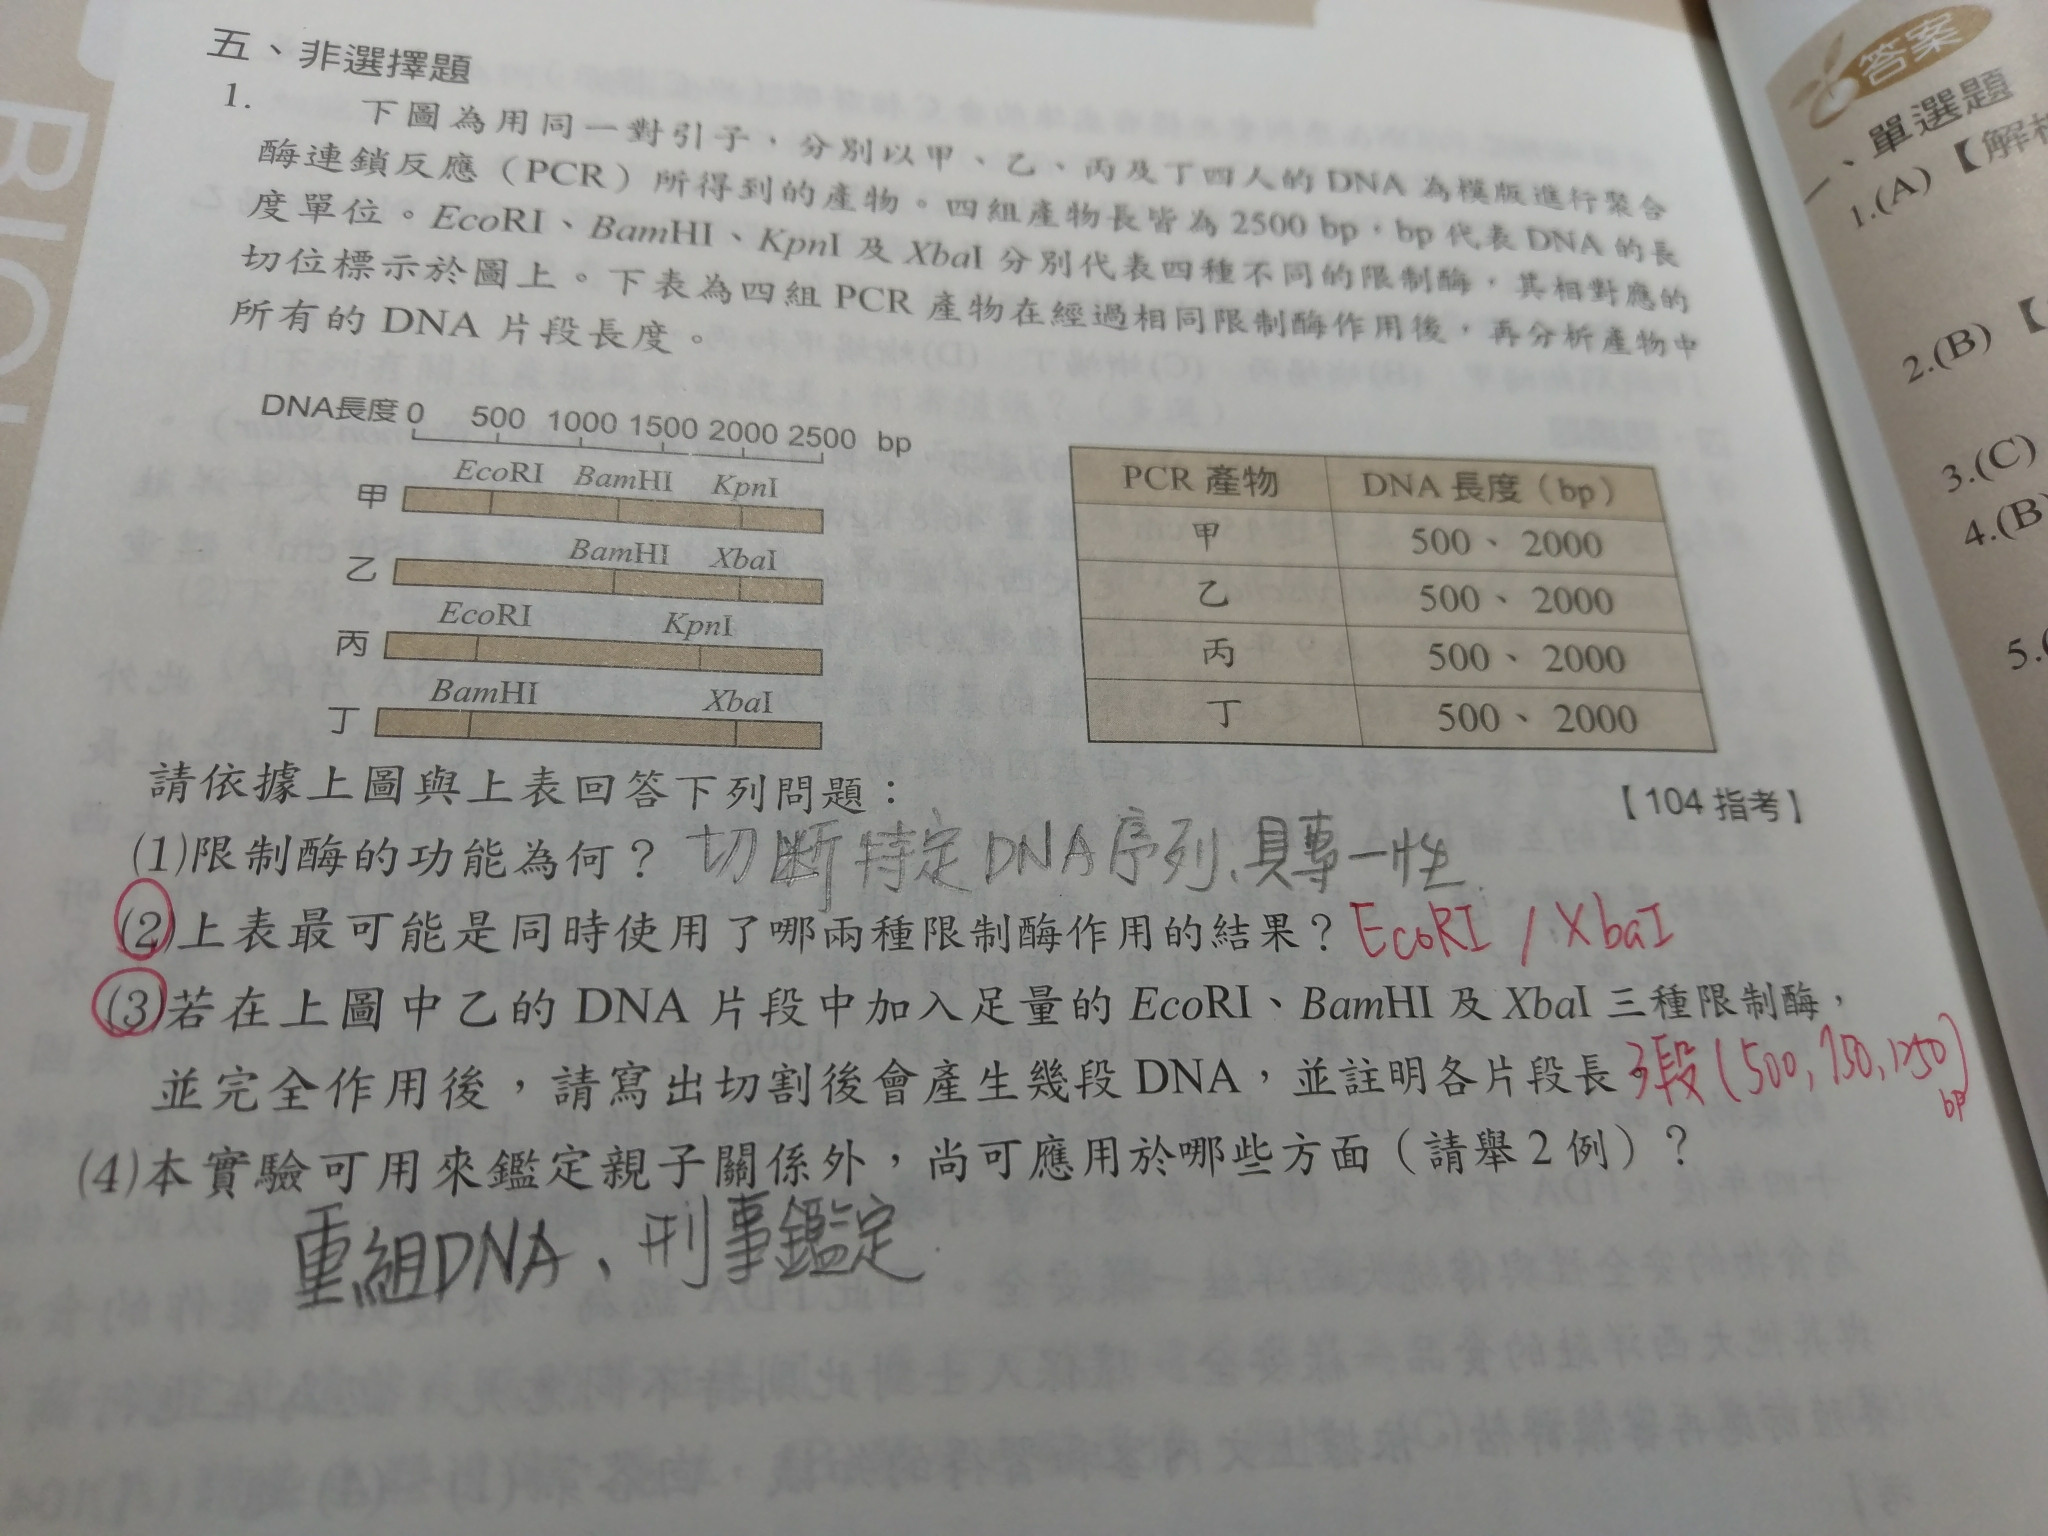 五、非選擇題
1. 下圖為用同一對引子，分別以甲、乙、丙及丁四人的 DNA 為模版進行聚合
酶連鎖反應（PCR）所得到的產物。四組產物長皆為 2500 bp，bp 代表 DNA 的長
度單位。EcoRI、BamHI、KpnI 及 XbaI 分別代表四種不同的限制酶，其相對應的
切位標示於圖上。下表為四組 PCR 產物在經過相同限制酶作用後，再分析產物中
所有的 DNA 片段長度。
DNA長度 0 500 1000 1500 2000 2500 bp
EcoRI BamHI KpnI
甲
BamHI XbaI
乙
EcoRI KpnI
丙
BamHI XbaI
丁
PCR 產物 DNA 長度（bp）
甲 500、2000
乙 500、2000
丙 500、2000
丁 500、2000
請依據上圖與上表回答下列問題：
【104 指考】
(1)限制酶的功能為何？ 切斷特定DNA序列、具專一性
(2)上表最可能是同時使用了哪兩種限制酶作用的結果？ EcoRI / XbaI
(3)若在上圖中乙的 DNA 片段中加入足量的 EcoRI、BamHI 及 XbaI 三種限制酶，
並完全作用後，請寫出切割後會產生幾段 DNA，並註明各片段長 3段(500,750,1250)
bp
(4)本實驗可用來鑑定親子關係外，尚可應用於哪些方面（請舉 2 例）？
重組DNA、刑事鑑定
答案
一、單選題
1.(A)【解析
2.(B)【
3.(C)
4.(B
5.(